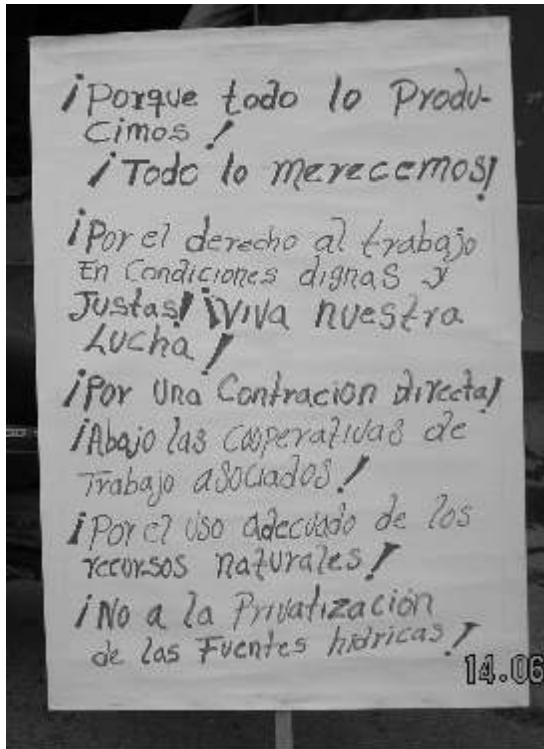 ¡Porque todo lo Produ-
cimos!
¡Todo lo merecemos!
¡Por el derecho al trabajo
En Condiciones dignas y
Justas! ¡Viva nuestra
Lucha!
¡Por Una Contracion directa!
¡Abajo las Cooperativas de
Trabajo asociados!
¡Por el uso adecuado de los
recursos naturales!
¡No a la Privatización
de las Fuentes hídricas!
14.06